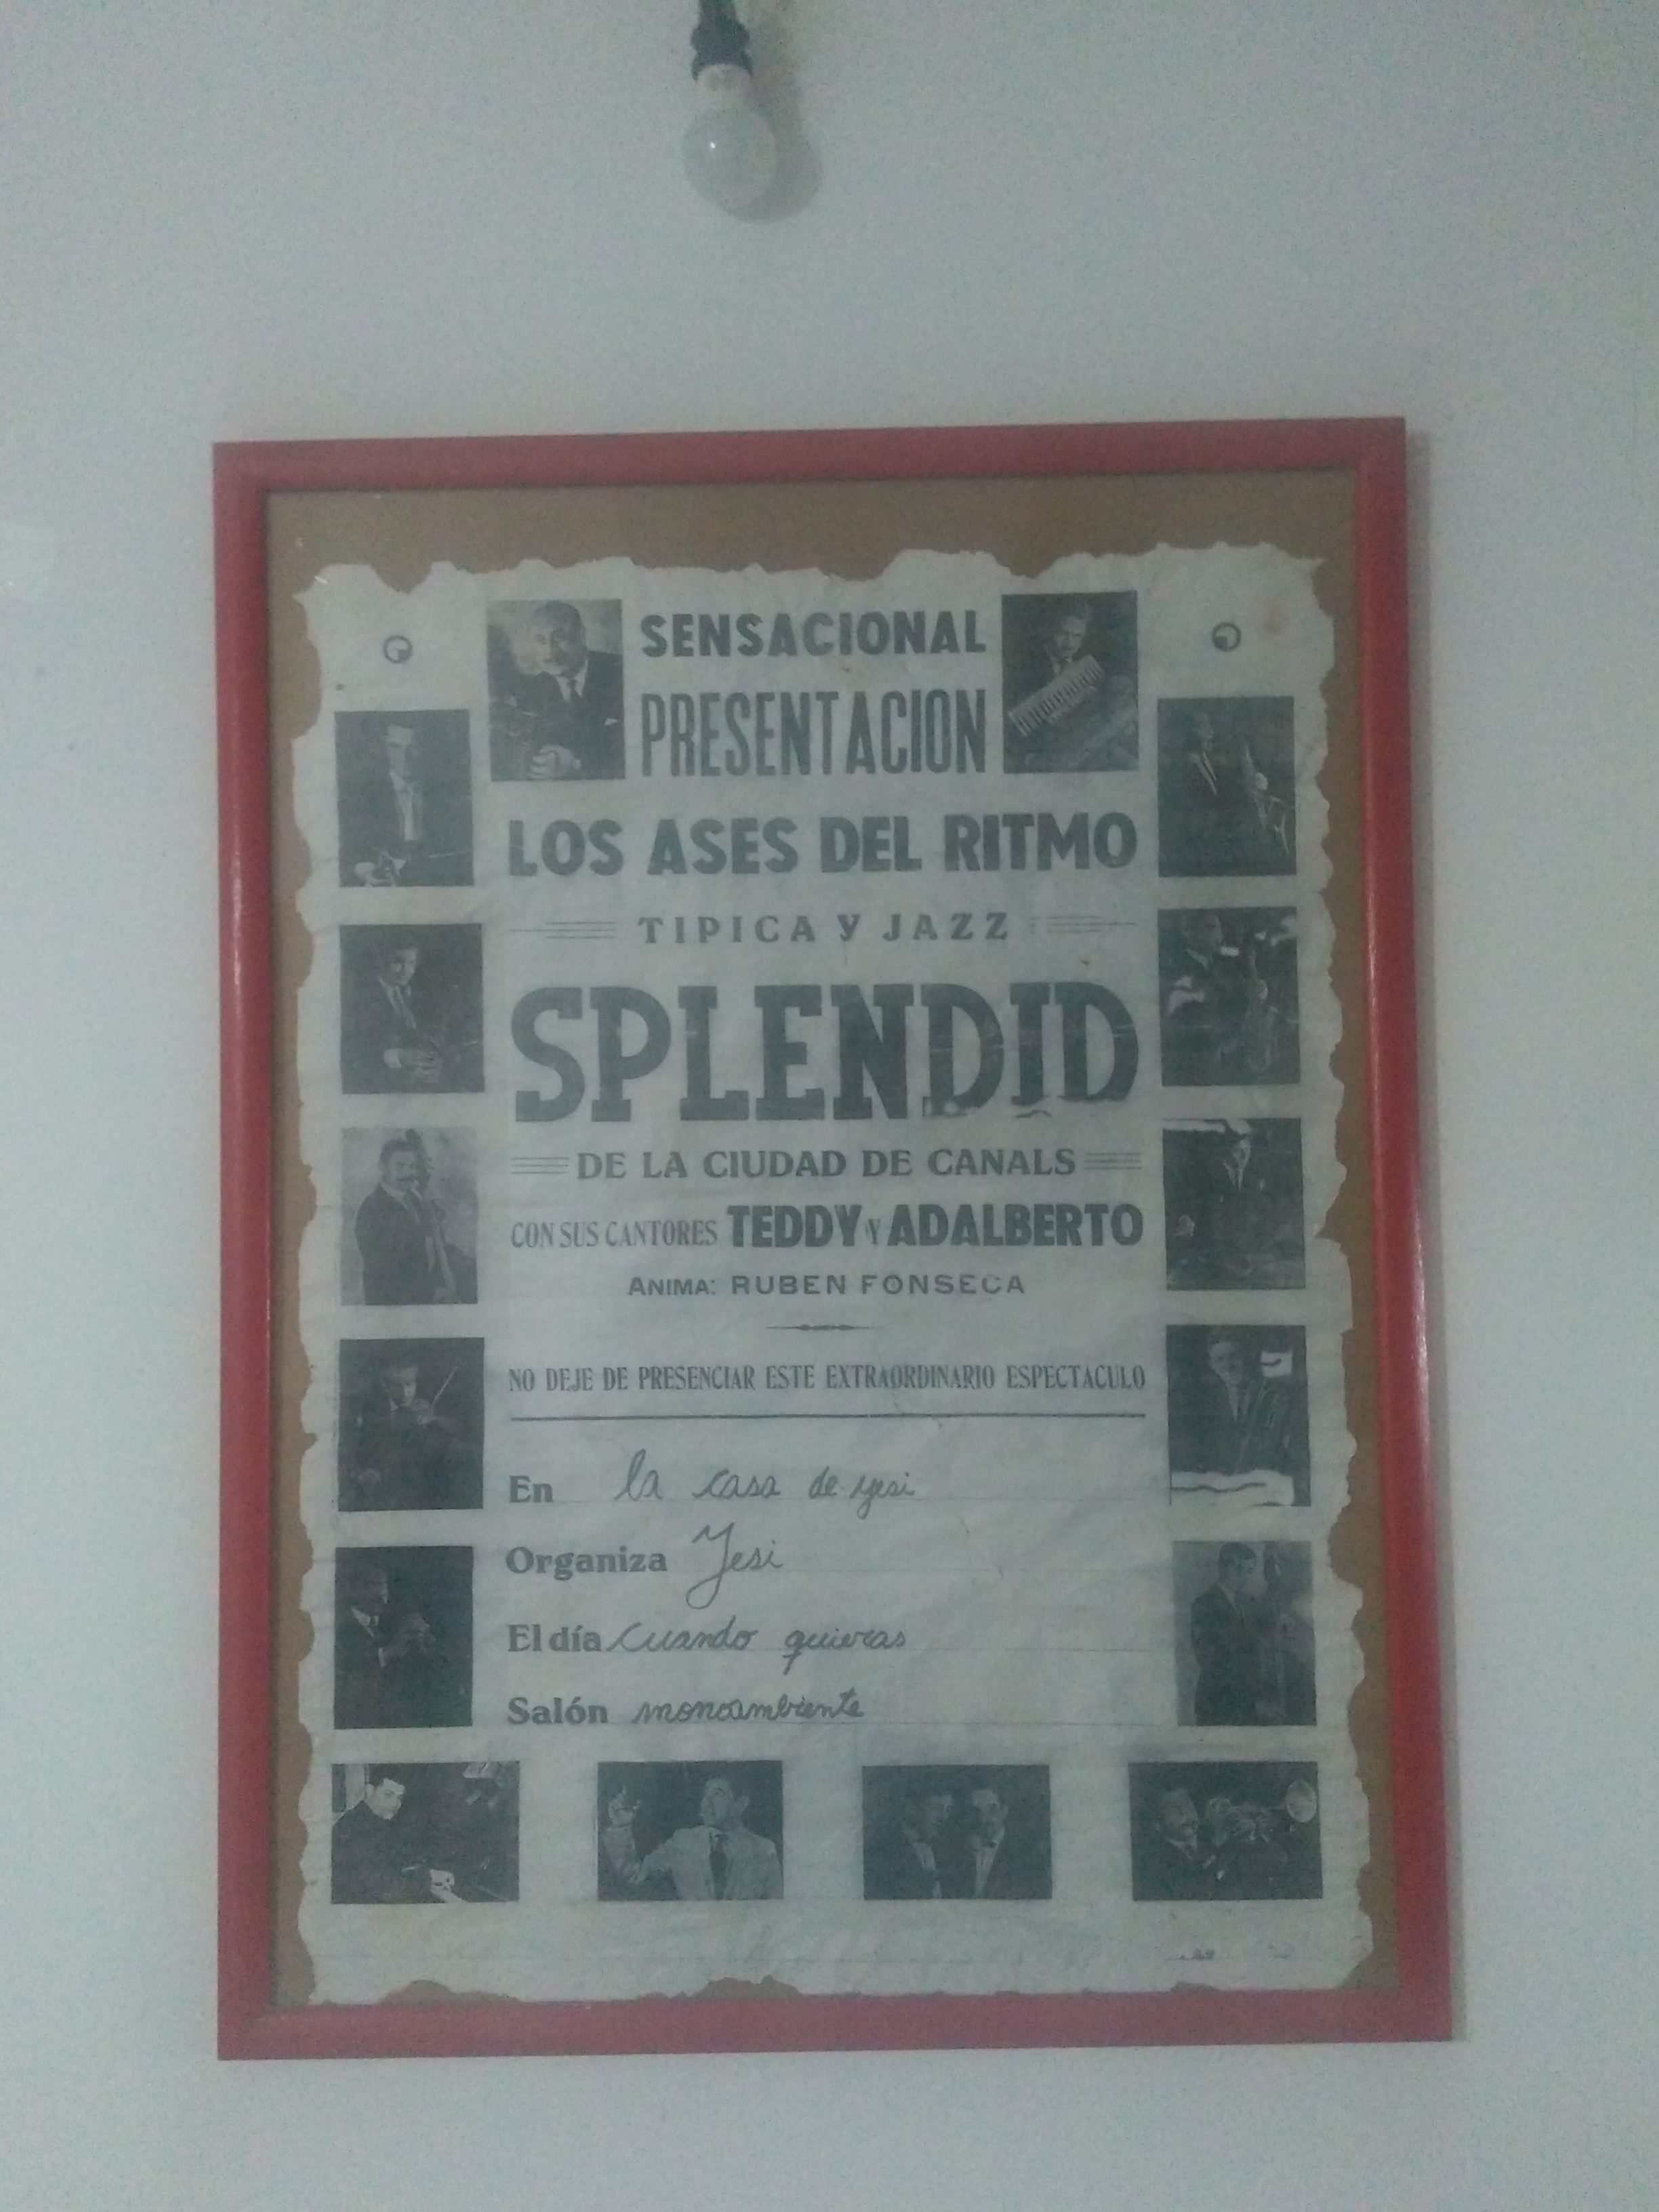 SENSACIONAL
PRESENTACION
LOS ASES DEL RITMO
TIPICA Y JAZZ
SPLENDID
DE LA CIUDAD DE CANALS
CON SUS CANTORES TEDDY Y ADALBERTO
ANIMA: RUBEN FONSECA
NO DEJE DE PRESENCIAR ESTE EXTRAORDINARIO ESPECTACULO
En la casa de yesi
Organiza Yesi
El día cuando quieras
Salón monoambiente